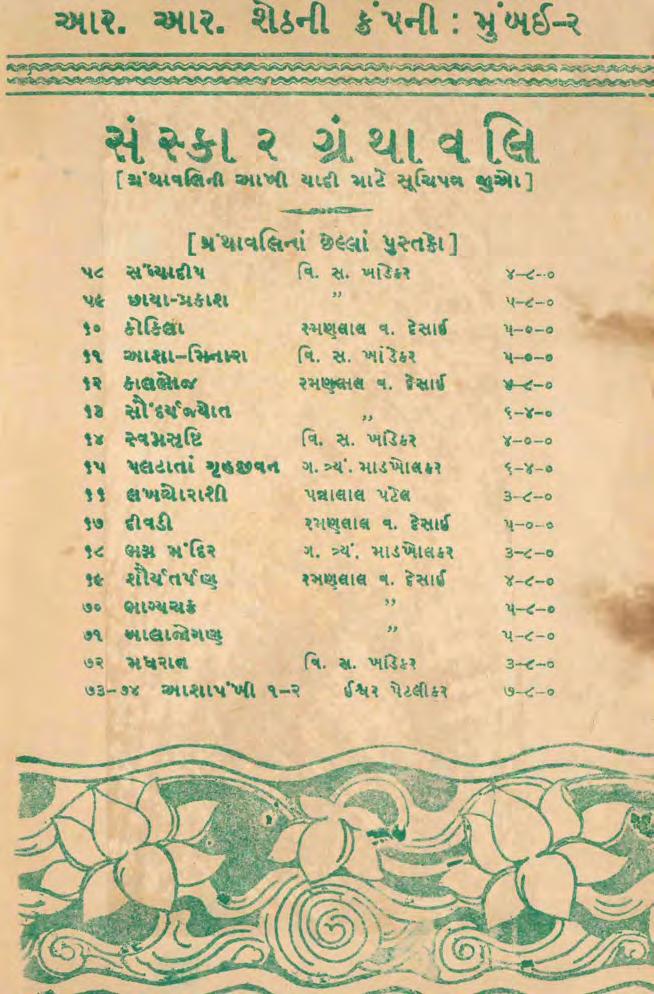 આર. આર. શેઠની કંપની : મુંબઈ–૨
સંસ્કાર ગ્રંથાવલિ
[ગ્રંથાવલિની આખી યાદી માટે સૂચિપત્ર જુઓ]
[ગ્રંથાવલિનાં છેલ્લાં પુસ્તકો]
૫૮ સંધ્યાદીપ વિ. સ. ખાંડેકર ૪–૮–૦
૫૯ છાયા-પ્રકાશ ” ૫–૮–૦
૬૦ કોકિલા રમણલાલ વ. દેસાઈ ૫–૦–૦
૬૧ આશા–મિનારા વિ. સ. ખાંડેકર ૫–૦–૦
૬૨ કાલભોજ રમણલાલ વ. દેસાઈ ૪–૮–૦
૬૩ સૌંદર્યજ્યોત ” ૬–૪–૦
૬૪ સ્વપ્નસૃષ્ટિ વિ. સ. ખાંડેકર ૪–૦–૦
૬૫ પલટાતાં ગૃહજીવન ગ. ત્ર્યં. માડખોલકર ૬–૪–૦
૬૬ લખચોરાશી પન્નાલાલ પટેલ ૩–૮–૦
૬૭ દીવડી રમણલાલ વ. દેસાઈ ૫–૦–૦
૬૮ ભગ્ન મંદિર ગ. ત્ર્યં. માડખોલકર ૩–૮–૦
૬૯ શૌર્યતર્પણ રમણલાલ વ. દેસાઈ ૪–૮–૦
૭૦ ભાગ્યચક્ર ” ૫–૮–૦
૭૧ બાલાજોગણ ” ૫–૮–૦
૭૨ મધરાત વિ. સ. ખાંડેકર ૩–૮–૦
૭૩–૭૪ આશાપંખી ૧–૨ ઈશ્વર પેટલીકર ૭–૮–૦